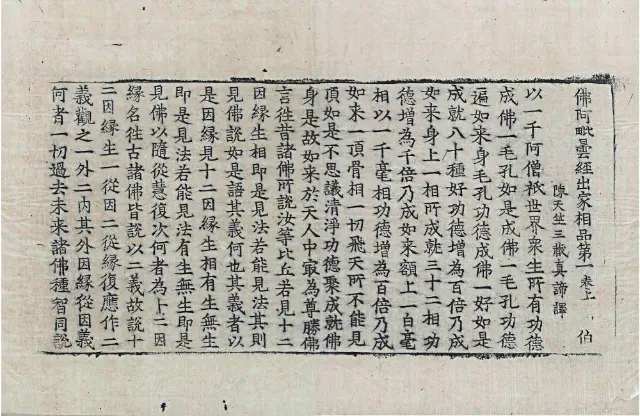 佛阿毗曇經出家相品第一 卷上 伯
陳天竺三藏真諦譯
以一千阿僧祇世界衆生所有功德
成佛一毛孔如是成佛一毛孔功德
遍如來身毛孔功德成佛一好如是
成就八十種好功德增為百倍乃成
如來身上一相所成就三十二相功
德增為千倍乃成如來額上一白毫
相以一千毫相功德增為百倍乃成
如來一頂骨相一切飛天所不能見
頂如是不思議清淨功德聚成就佛
身是故如來於天人中㝡為尊勝佛
言徃昔諸佛所說汝等比丘若見十二
因緣生相即是見法若能見法其則
見佛說如是語其義何也其義者以
是因緣見十二因緣生相有生無生
即是見法若能見法有生無生即是
見佛以隨從慧復次何者為十二因
緣名徃古諸佛皆說以二義故說十
二因緣生一從因二從緣復應作二
義觀之一外二內其外因緣從因義
何者一切過去未來諸佛種智同說